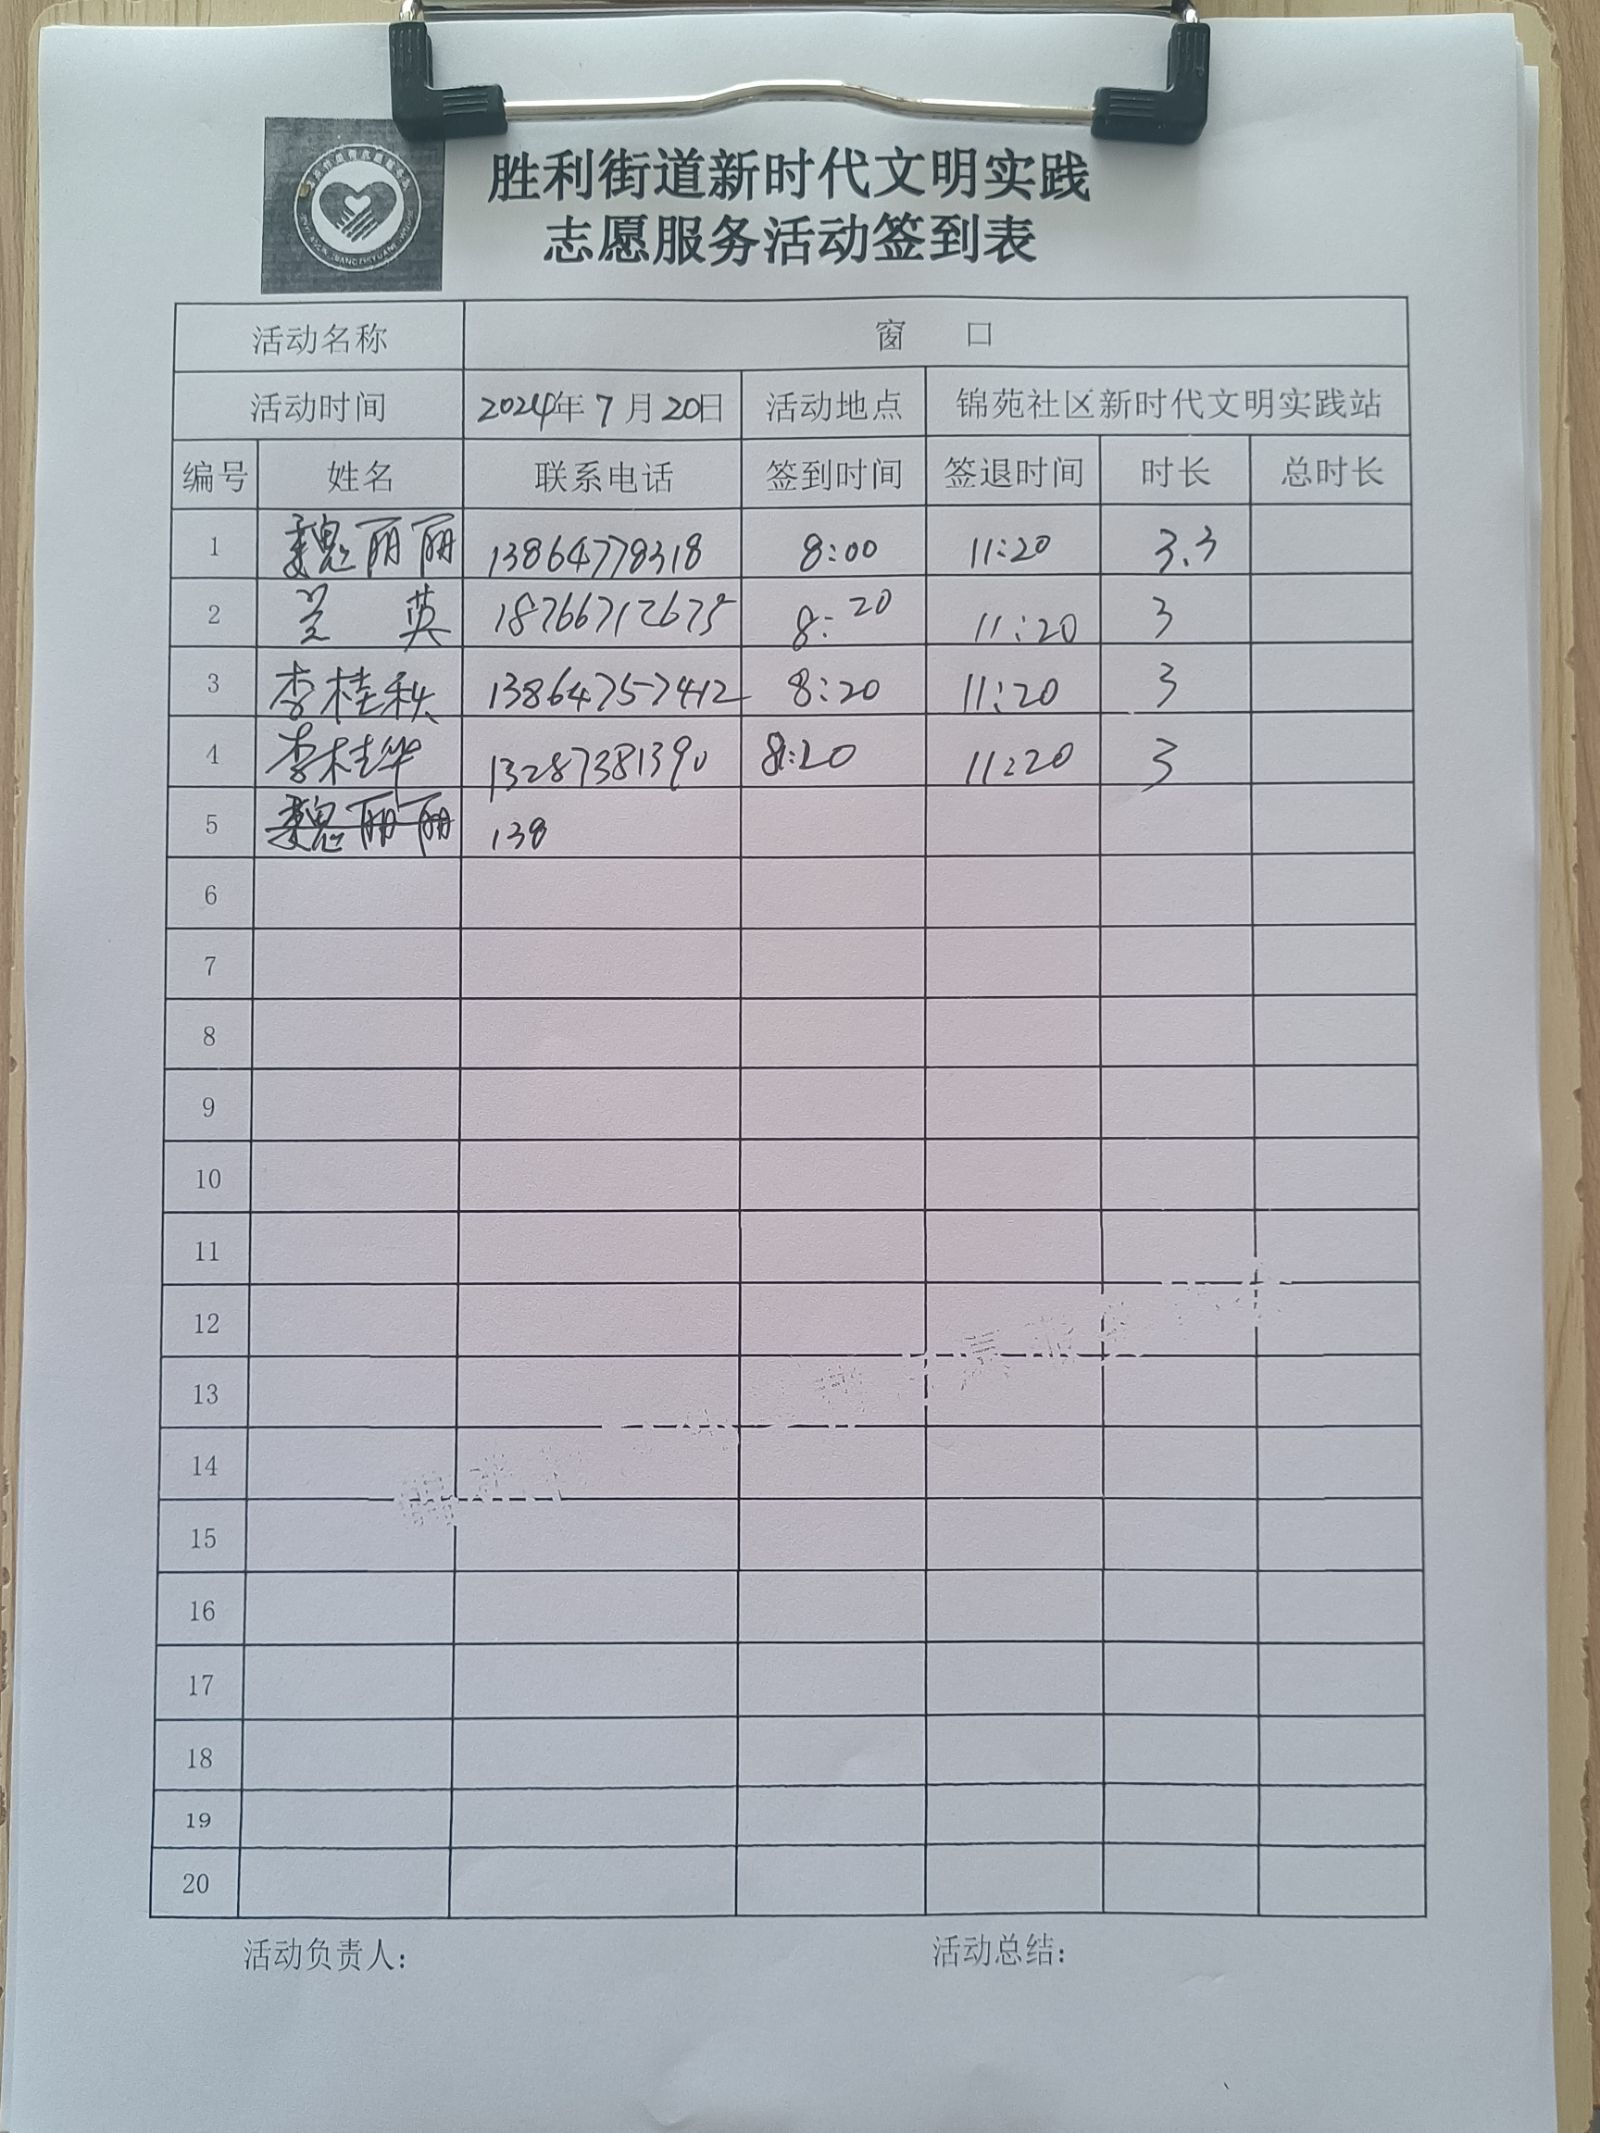 胜利街道新时代文明实践
志愿服务活动签到表
活动名称 窗 口
活动时间 2024年7月20日 活动地点 锦苑社区新时代文明实践站
编号 姓名 联系电话 签到时间 签退时间 时长 总时长
1 魏丽丽 13864778318 8:00 11:20 3.3
2 兰 英 18766712675 8:20 11:20 3
3 李桂秋 13864757412 8:20 11:20 3
4 李桂华 13287381390 8:20 11:20 3
5 魏丽丽 138
6
7
8
9
10
11
12
13
14
15
16
17
18
19
20
活动负责人: 活动总结: